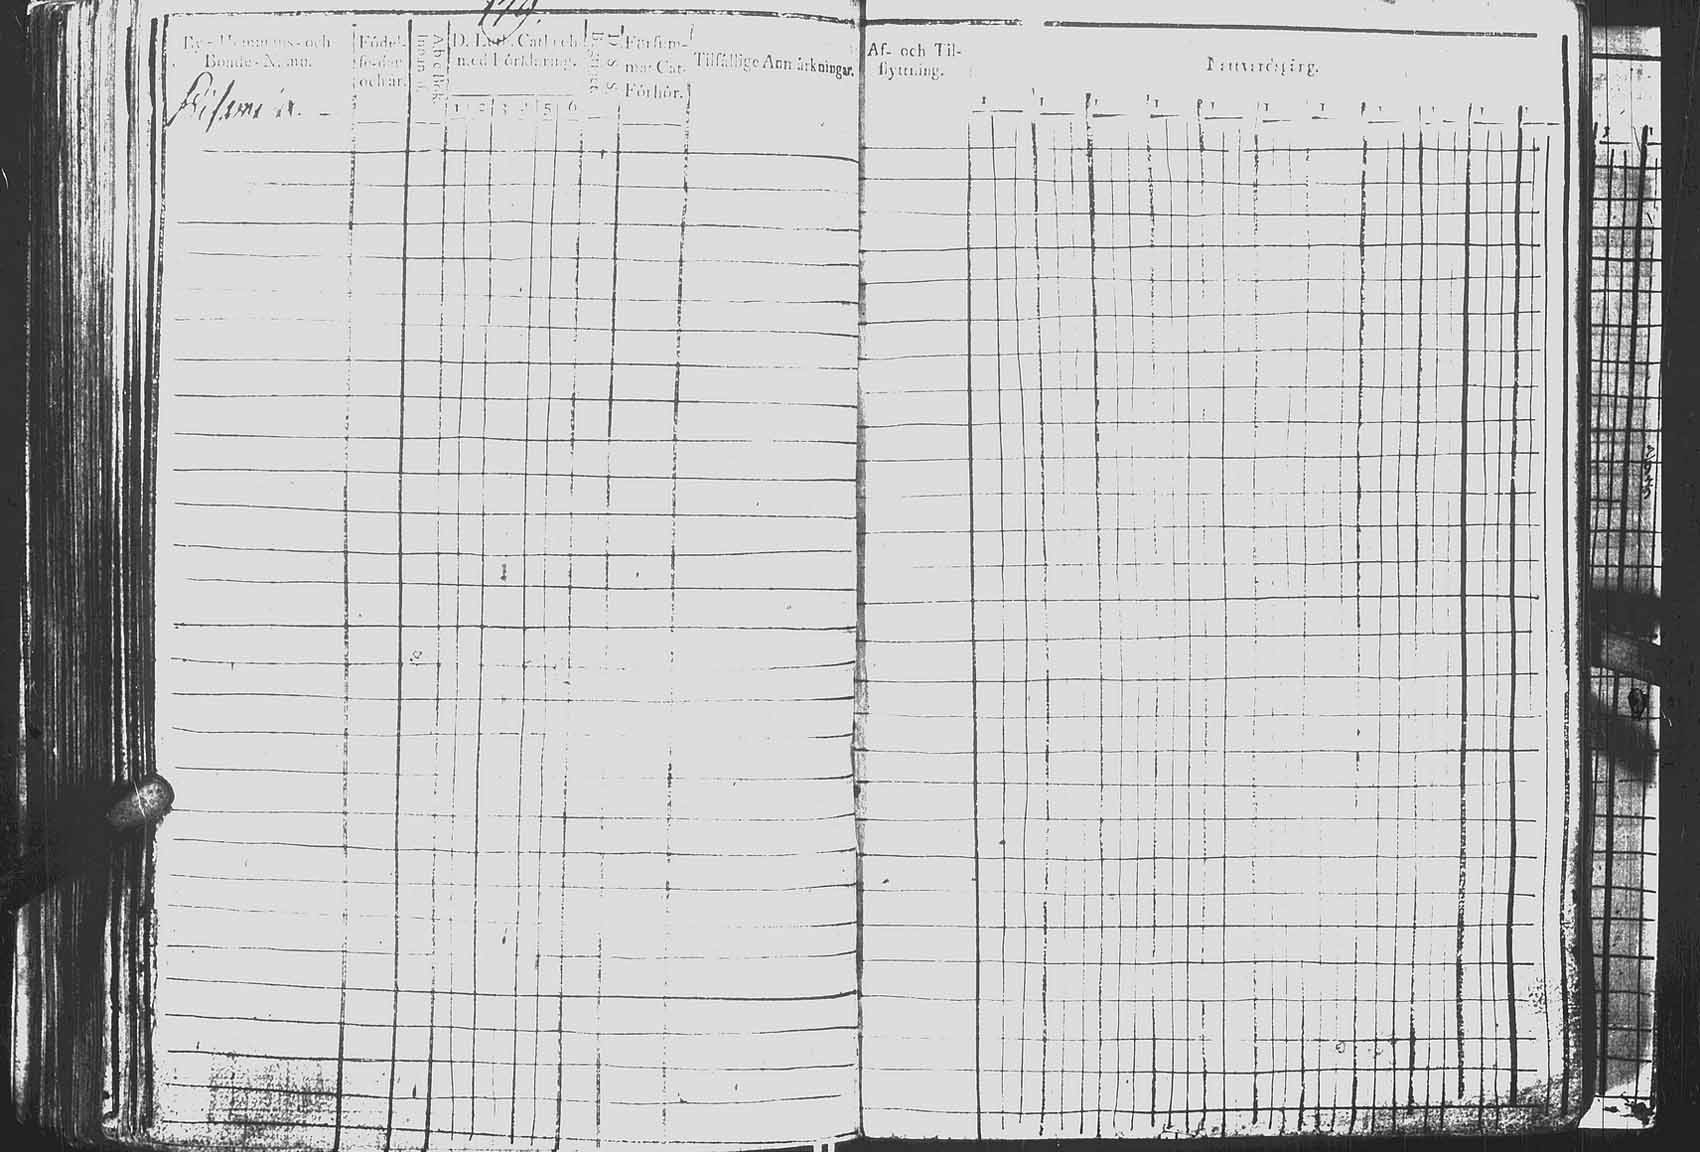 179.
By- Hemmans- och
Bonde- Namn.
Födel-
se-dag
och år.
A b c Bok
Innan til
D. Luth. Catbech
med Förklaring.
1 2 3 4 5 6
D. S. S.
Försum-
mat Cat.
Förhör.
Tilfällige Anmärkningar.
Af- och Til-
flyttning.
Nattvardsgång.
1 1 1 1 1 1 1 1 1 1 1